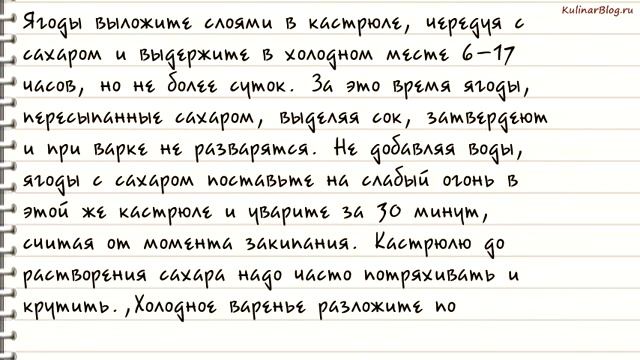 KulinarBlog.ru
Ягоды выложите слоями в кастрюле, чередуя с
сахаром и выдержите в холодном месте 6–17
часов, но не более суток. За это время ягоды,
пересыпанные сахаром, выделяя сок, затвердеют
и при варке не разварятся. Не добавляя воды,
ягоды с сахаром поставьте на слабый огонь в
этой же кастрюле и уварите за 30 минут,
считая от момента закипания. Кастрюлю до
растворения сахара надо часто потряхивать и
крутить.,Холодное варенье разложите по